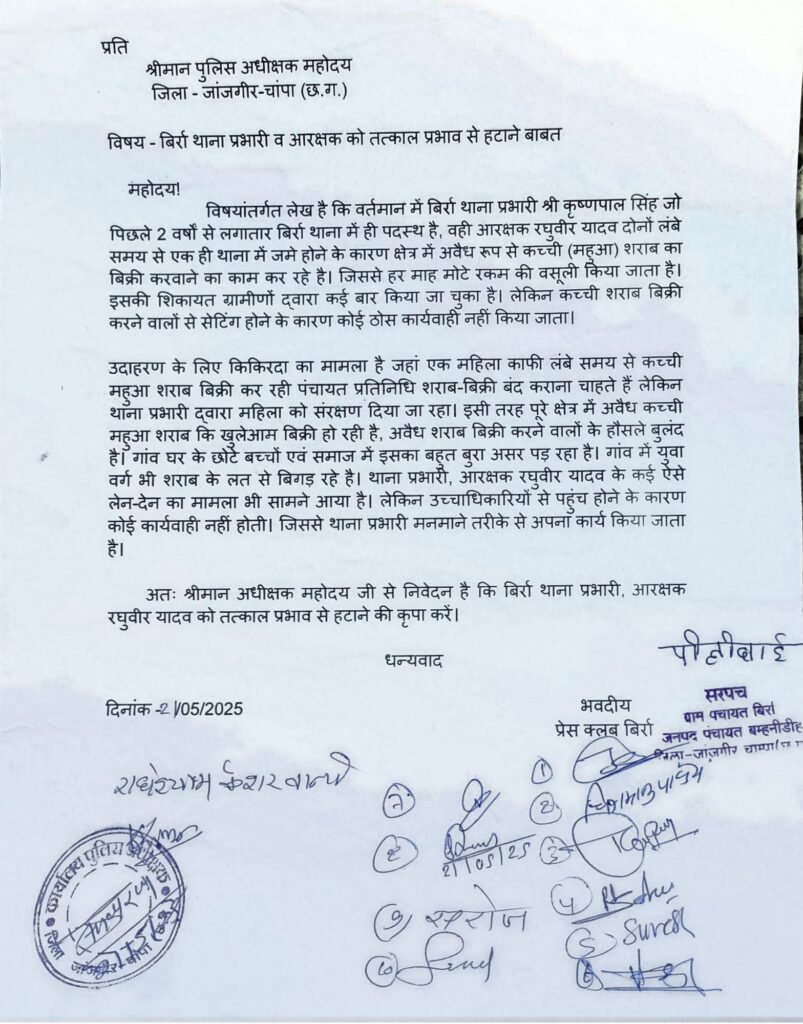 प्रति
श्रीमान पुलिस अधीक्षक महोदय
जिला - जांजगीर-चांपा (छ.ग.)
विषय - बिर्रा थाना प्रभारी व आरक्षक को तत्काल प्रभाव से हटाने बाबत
महोदय!
विषयांतर्गत लेख है कि वर्तमान में बिर्रा थाना प्रभारी श्री कृष्णपाल सिंह जो
पिछले 2 वर्षो से लगातार बिर्रा थाना में ही पदस्थ है, वही आरक्षक रघुवीर यादव दोनों लंबे
समय से एक ही थाना में जमे होने के कारण क्षेत्र में अवैध रूप से कच्ची (महुआ) शराब का
बिक्री करवाने का काम कर रहे है। जिससे हर माह मोटे रकम की वसूली किया जाता है।
इसकी शिकायत ग्रामीणों द्वारा कई बार किया जा चुका है। लेकिन कच्ची शराब बिक्री
करने वालों से सेटिंग होने के कारण कोई ठोस कार्यवाही नहीं किया जाता।
उदाहरण के लिए किकिरदा का मामला है जहां एक महिला काफी लंबे समय से कच्ची
महुआ शराब बिक्री कर रही पंचायत प्रतिनिधि शराब-बिक्री बंद कराना चाहते हैं लेकिन
थाना प्रभारी द्वारा महिला को संरक्षण दिया जा रहा। इसी तरह पूरे क्षेत्र में अवैध कच्ची
महुआ शराब कि खुलेआम बिक्री हो रही है, अवैध शराब बिक्री करने वालों के हौसले बुलंद
है। गांव घर के छोटे बच्चों एवं समाज में इसका बहुत बुरा असर पड़ रहा है। गांव में युवा
वर्ग भी शराब के लत से बिगड़ रहे है। थाना प्रभारी, आरक्षक रघुवीर यादव के कई ऐसे
लेन-देन का मामला भी सामने आया है। लेकिन उच्चाधिकारियों से पहुंच होने के कारण
कोई कार्यवाही नहीं होती। जिससे थाना प्रभारी मनमाने तरीके से अपना कार्य किया जाता
है।
अतः श्रीमान अधीक्षक महोदय जी से निवेदन है कि बिर्रा थाना प्रभारी, आरक्षक
रघुवीर यादव को तत्काल प्रभाव से हटाने की कृपा करें।
धन्यवाद
दिनांक -21/05/2025
भवदीय
प्रेस क्लब बिर्रा
सरपंच
ग्राम पंचायत बिर्रा
जनपद पंचायत बम्हनीडीह
जिला-जांजगीर चाम्पा
राधेश्याम केशरवानी
21/05/25
सरोज
Suresh
कार्यालय पुलिस अधीक्षक
जिला जांजगीर-चांपा